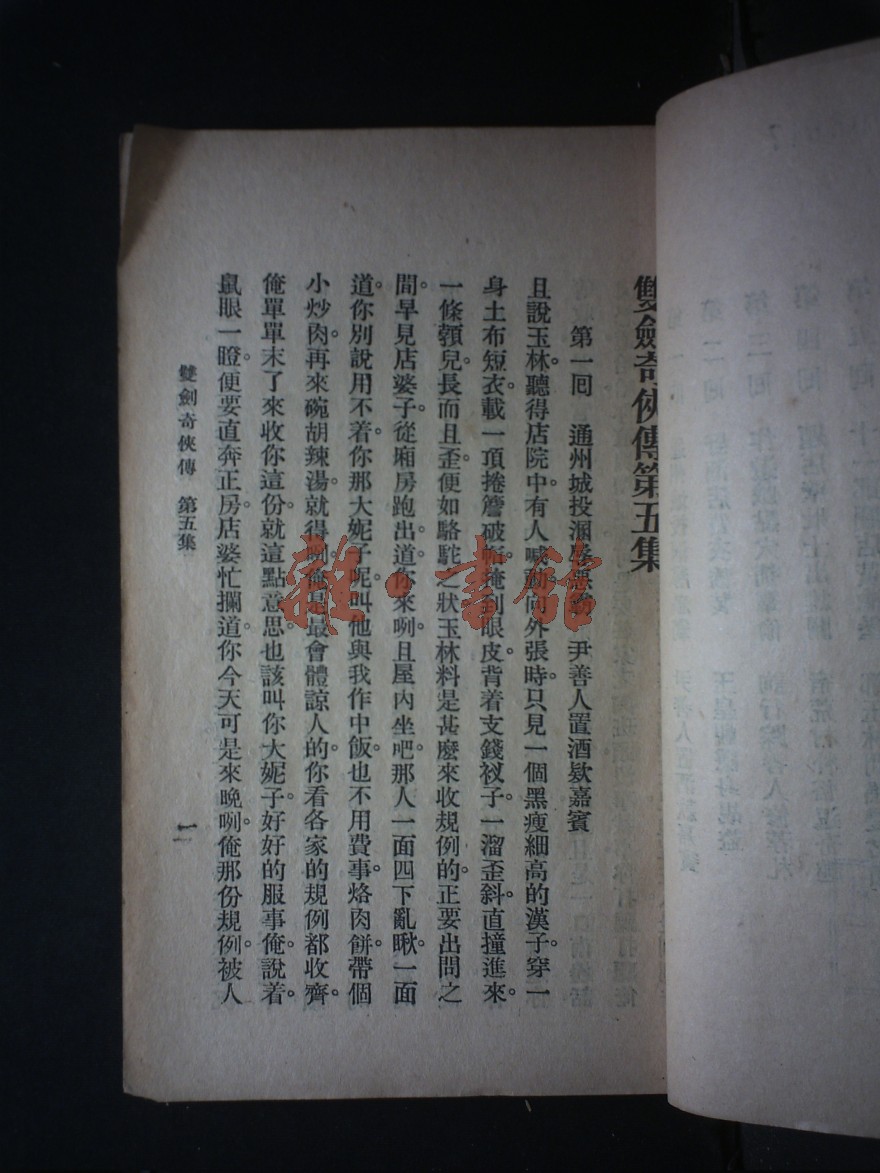 雙劍奇俠傳第五集
第一回　通州城投溷辱惡動　尹善人置酒欵嘉賓
且說玉林聽得店院中有人喊動向外張時只見一個黑瘦細高的漢子穿一
身土布短衣載一項捲簷破帽掩到眼皮背着支錢衩子一溜歪斜直撞進來
一條顙兒長而且歪便如駱駝之狀玉林料是甚麼來收規例的正要出問之
間早見店婆子從廂房跑出道你來咧且屋內坐吧那人一面四下亂瞅一面
道你別說用不着你那大妮子呢叫他與我作中飯也不用費事烙肉餅帶個
小炒肉再來碗胡辣湯就得咧俺是最會體諒人的你看各家的規例都收齊
俺單單末了來收你這份就這點意思也該叫你大妮子好好的服事俺說着
鼠眼一瞪便要直奔正房店婆忙攔道你今天可是來晚咧俺那份規例被人
雙劍奇俠傳　第五集
一
雜·書館